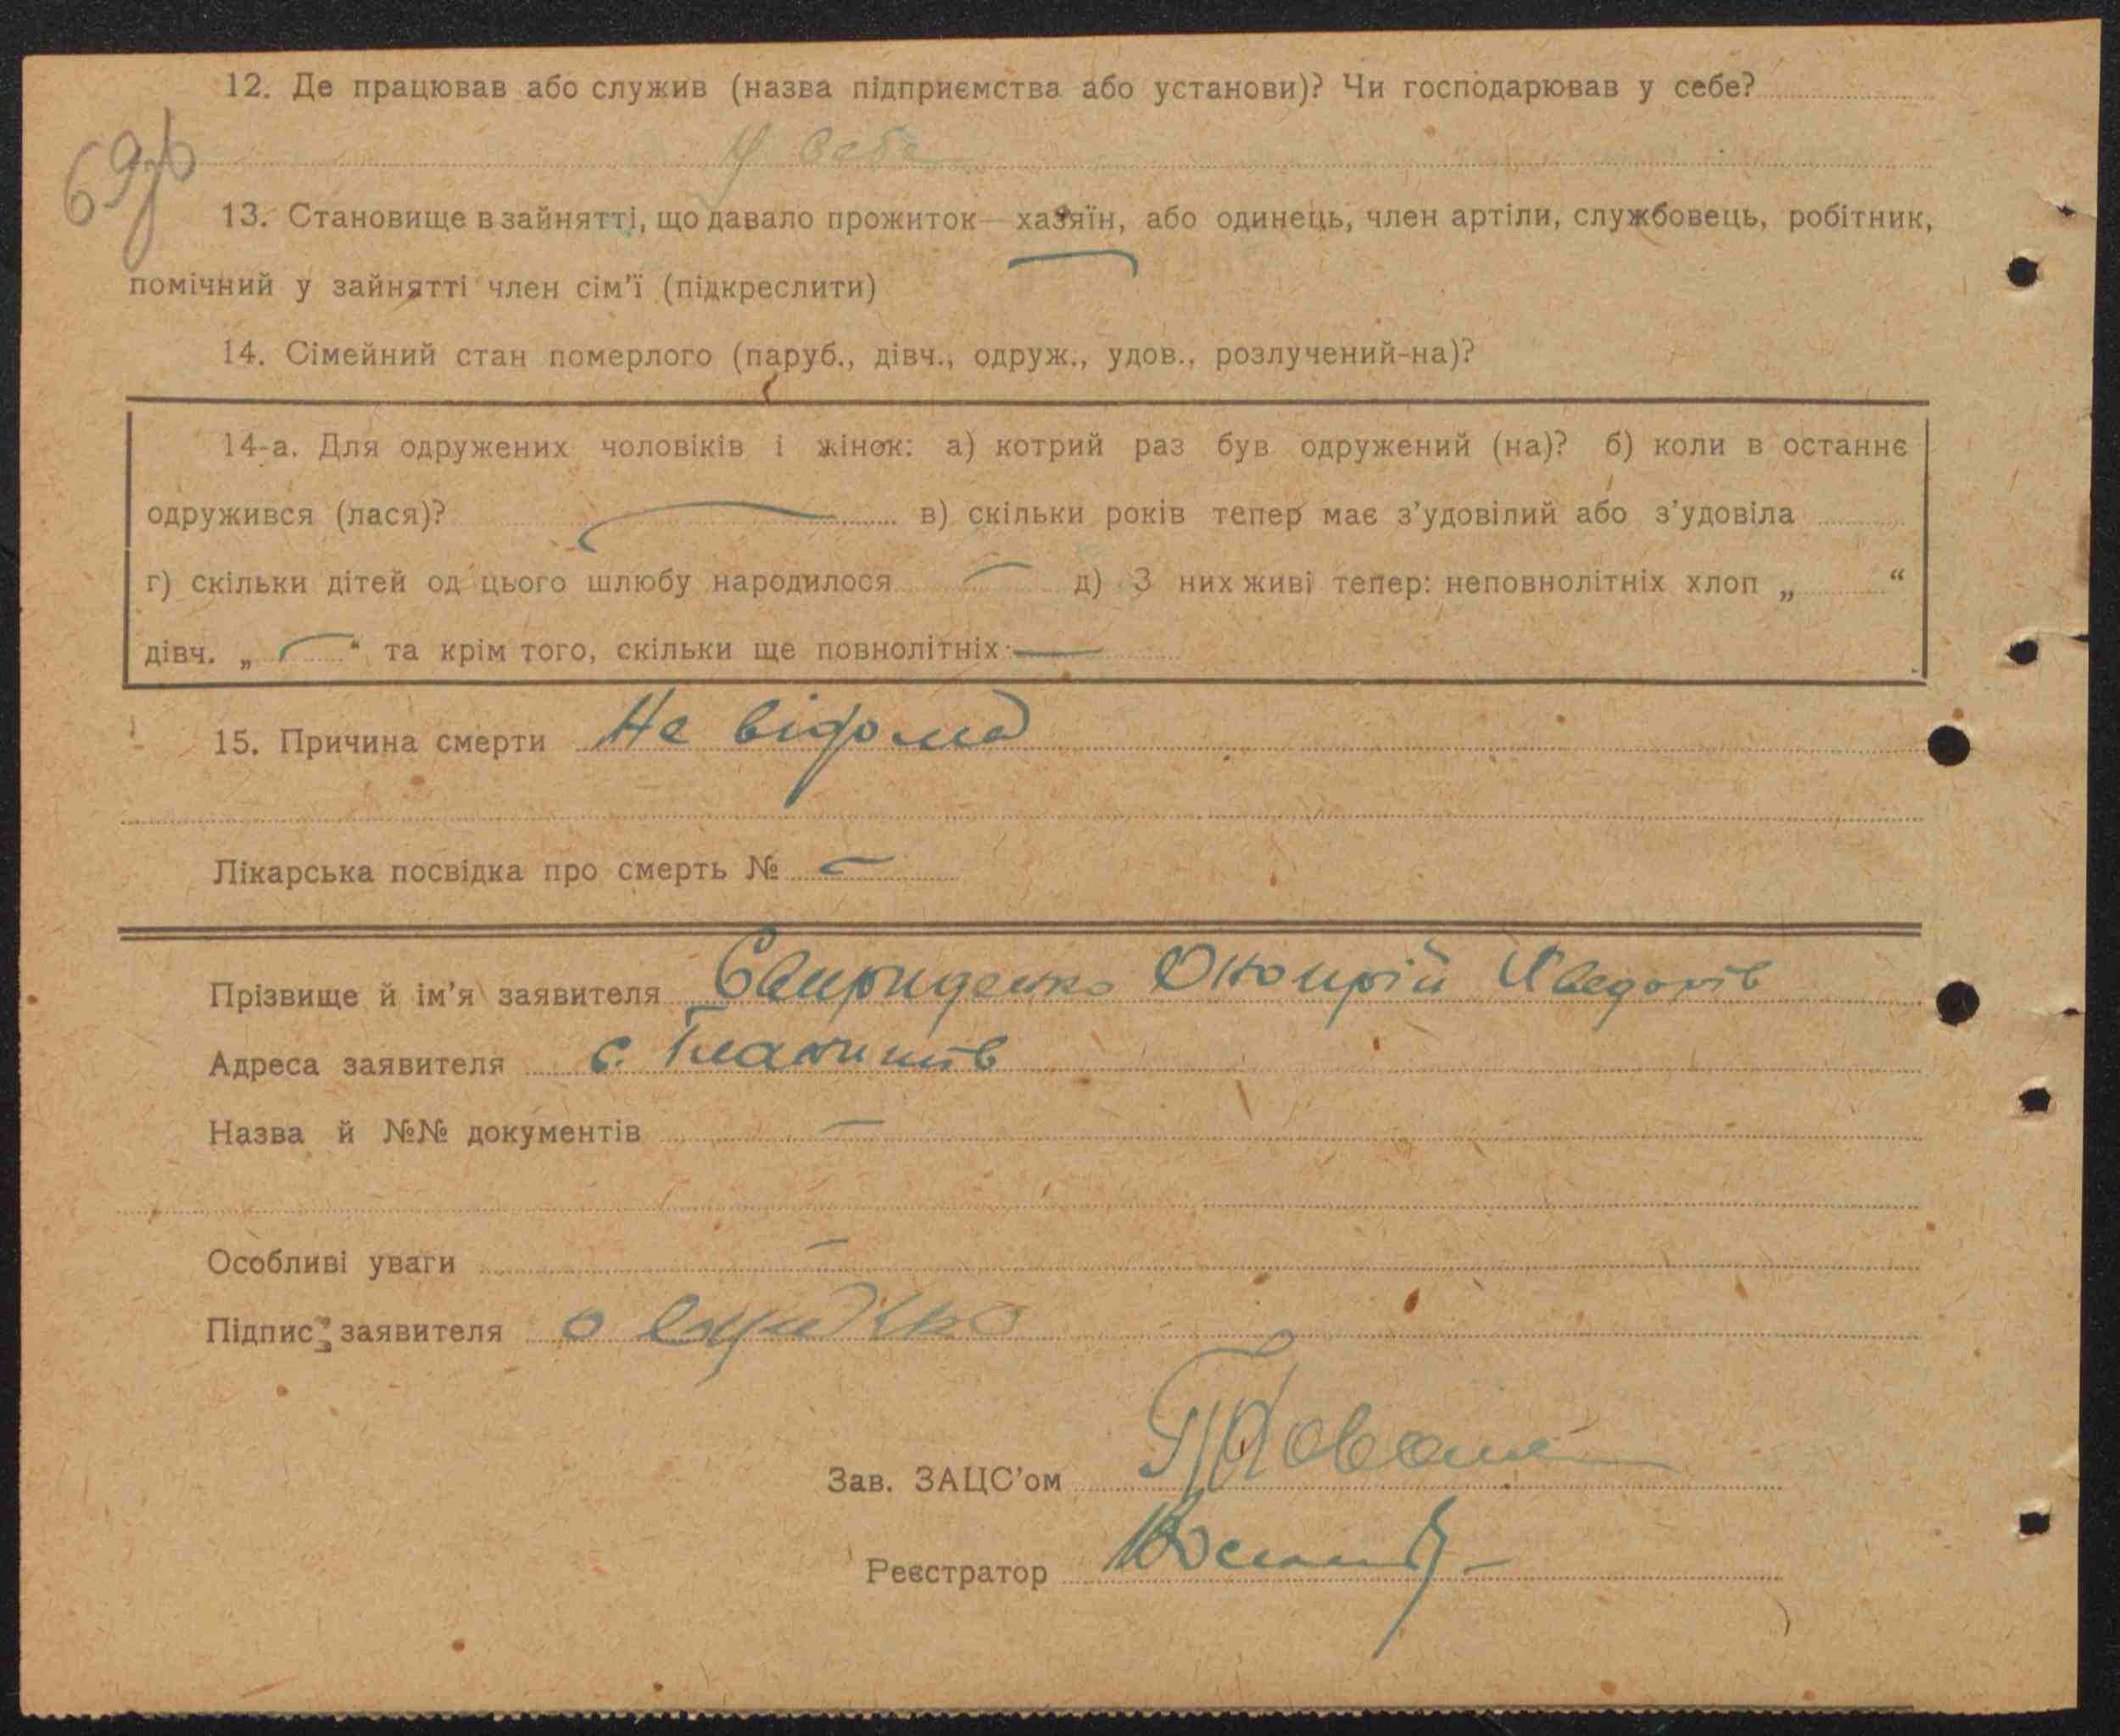 12. Де працював або служив (назва підприємства або установи)? Чи господарював у себе?
У себе
13. Становище в зайнятті, що давало прожиток—хазяїн, або одинець, член артіли, службовець, робітник,
помічний у зайнятті член сім'ї (підкреслити)
14. Сімейний стан померлого (паруб., дівч., одруж., удов., розлучений-на)?
14-а. Для одружених чоловіків і жінок: а) котрий раз був одружений (на)? б) коли в останнє
одружився (лася)? в) скільки років тепер має з'удовілий або з'удовіла
г) скільки дітей од цього шлюбу народилося — д) З них живі тепер: неповнолітніх хлоп „ “
дівч. „ — “ та крім того, скільки ще повнолітніх —
15. Причина смерти Не відома
Лікарська посвідка про смерть № —
Прізвище й ім'я заявителя Свириденко Онопрій
Адреса заявителя с.
Назва й №№ документів —
Особливі уваги —
Підпис заявителя
Зав. ЗАЦС'ом
Реєстратор